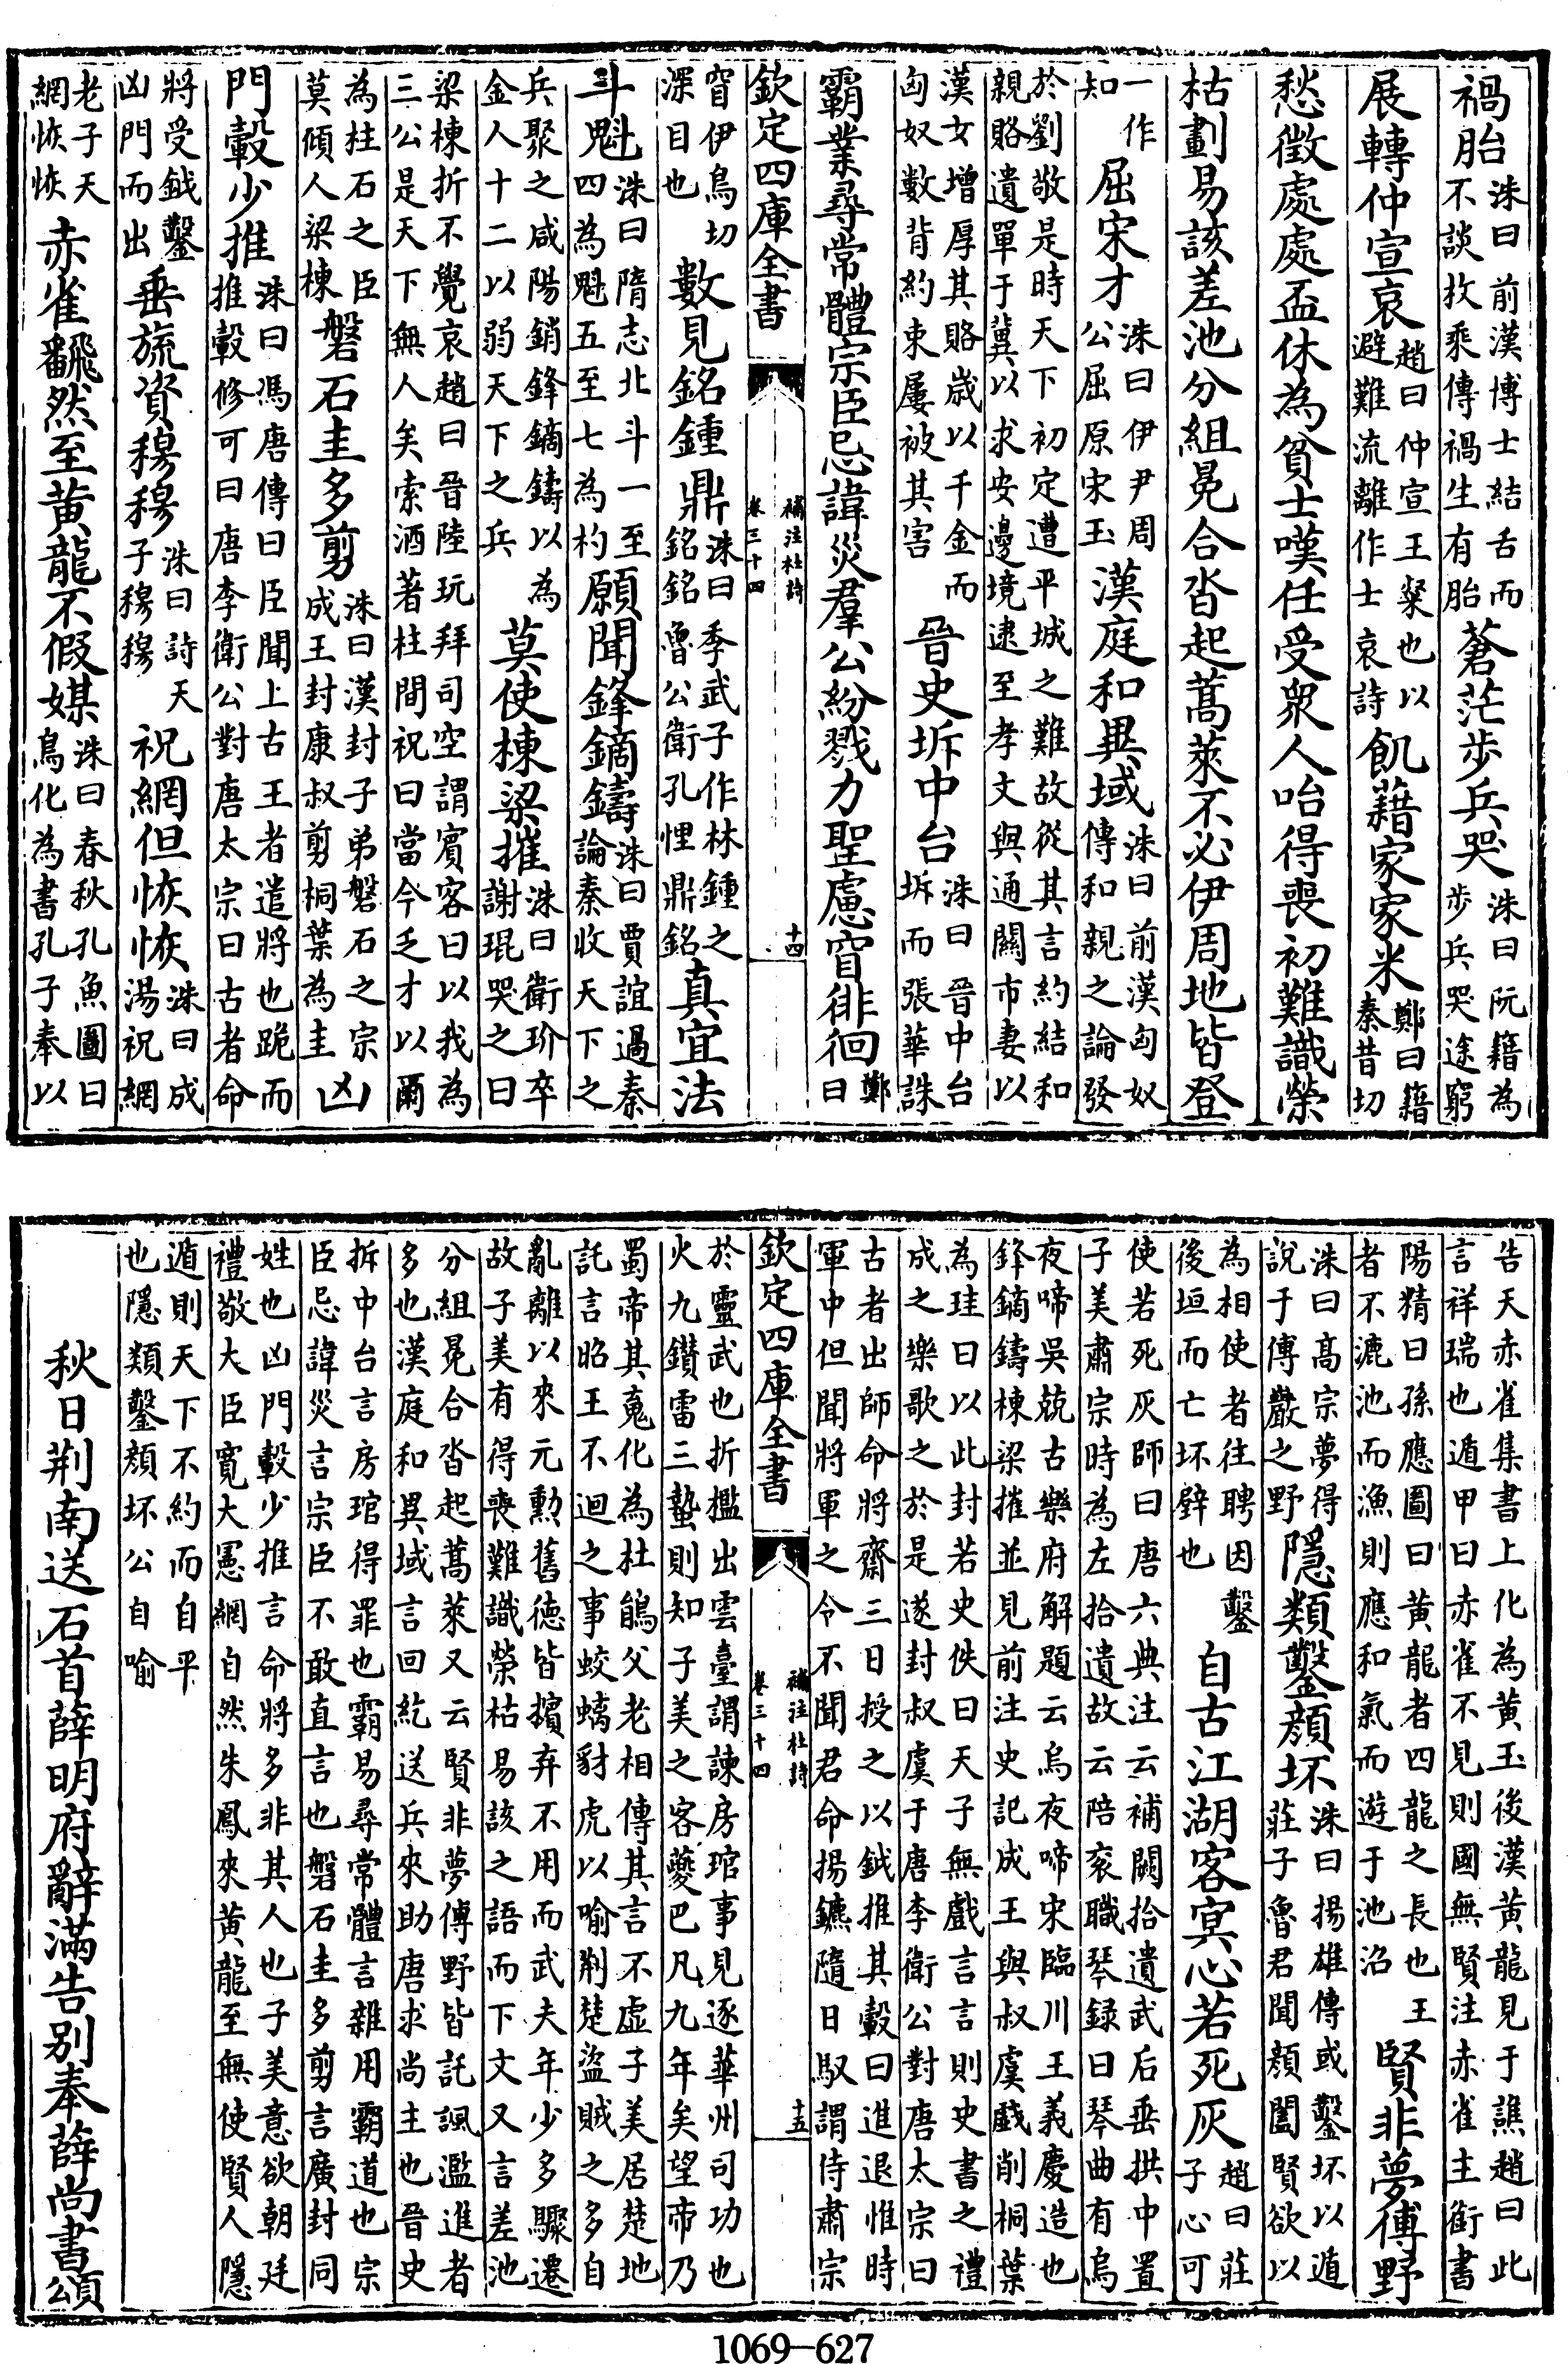 禍胎洙曰前漢博士結舌而不談枚乘傳禍生有胎蒼茫步兵哭洙曰阮籍為步兵哭途窮
展轉仲宣哀趙曰仲宣王粲也以避難流離作士哀詩飢藉家家米鄭曰籍秦昔切
愁徵處處盃休為貧士嘆任受衆人咍得喪初難識榮
枯劃易該差池分組冕合沓起蒿萊不必伊周地皆登
一作知屈宋才洙曰伊尹周公屈原宋玉漢庭和異域洙曰前漢匈奴傳和親之論發
於劉敬是時天下初定遭平城之難故從其言約結和親賂遺單于冀以求安邊境逮至孝文與通關市妻以
漢女增厚其賂歲以千金而匈奴數背約束屢被其害晉史坼中台洙曰晉中台坼而張華誅
霸業尋常體宗臣忌諱災羣公紛戮力聖慮窅徘徊鄭曰
欽定四庫全書
補注杜詩
卷三十四
十四
窅伊鳥切深目也數見銘鍾鼎洙曰季武子作林鍾之銘銘魯公衛孔悝鼎銘真宜法
斗魁洙曰隋志北斗一至四為魁五至七為杓願聞鋒鏑鑄洙曰賈誼過秦論秦收天下之
兵聚之咸陽銷鋒鏑鑄以為金人十二以弱天下之兵莫使棟梁摧洙曰衛玠卒謝琨哭之曰
梁棟折不覺哀趙曰晉陸玩拜司空謂賓客曰以我為三公是天下無人矣索酒著柱間祝曰當今乏才以爾
為柱石之臣莫傾人梁棟磐石圭多剪洙曰漢封子弟磐石之宗成王封康叔剪桐葉為圭凶
門轂少推洙曰馮唐傳曰臣聞上古王者遣將也跪而推轂修可曰唐李衛公對唐太宗曰古者命
將受鉞鑿凶門而出垂旒資穆穆洙曰詩天子穆穆祝網但恢恢洙曰成湯祝網
老子天網恢恢赤雀翻然至黃龍不假媒洙曰春秋孔魚圖曰鳥化為書孔子奉以
告天赤雀集書上化為黃玉後漢黃龍見于譙趙曰此言祥瑞也遁甲曰赤雀不見則國無賢注赤雀主銜書
陽精曰孫應圖曰黃龍者四龍之長也王者不漉池而漁則應和氣而遊于池沼賢非夢傅野
洙曰高宗夢得說于傅巖之野隱類鑿顏坏洙曰揚雄傳或鑿坏以遁莊子魯君聞顏闔賢欲以
為相使者往聘因鑿後垣而亡坏壁也自古江湖客冥心若死灰趙曰莊子心可
使若死灰師曰唐六典注云補闕拾遺武后垂拱中置子美肅宗時為左拾遺故云陪衮職琴録曰琴曲有烏
夜啼吳兢古樂府解題云烏夜啼宋臨川王義慶造也鋒鏑鑄棟梁摧並見前注史記成王與叔虞戲削桐葉
為珪曰以此封若史佚曰天子無戲言言則史書之禮成之樂歌之於是遂封叔虞于唐李衛公對唐太宗曰
古者出師命將齋三日授之以鉞推其轂曰進退惟時軍中但聞將軍之令不聞君命揚鑣隨日馭謂侍肅宗
欽定四庫全書
補注杜詩
卷三十四
十五
於靈武也折檻出雲臺謂諫房琯事見逐華州司功也火九鑽雷三蟄則知子美之客夔巴凡九年矣望帝乃
蜀帝其䰟化為杜鵑父老相傳其言不虛子美居楚地託言昭王不迴之事蛟螭豺虎以喻荆楚盜賊之多自
亂離以來元勳舊德皆擯弃不用而武夫年少多驟遷故子美有得喪難識榮枯易該之語而下文又言差池
分組冕合沓起蒿萊又云賢非夢傅野皆託諷濫進者多也漢庭和異域言回紇送兵來助唐求尚主也晉史
拆中台言房琯得罪也霸易尋常體言雜用霸道也宗臣忌諱災言宗臣不敢直言也磐石圭多剪言廣封同
姓也凶門轂少推言命將多非其人也子美意欲朝廷禮敬大臣寬大憲網自然朱鳳來黃龍至無使賢人隱
遁則天下不約而自平也隱類鑿顏坏公自喻
秋日荆南送石首薛明府辭滿告别奉薛尚書頌
1069—627